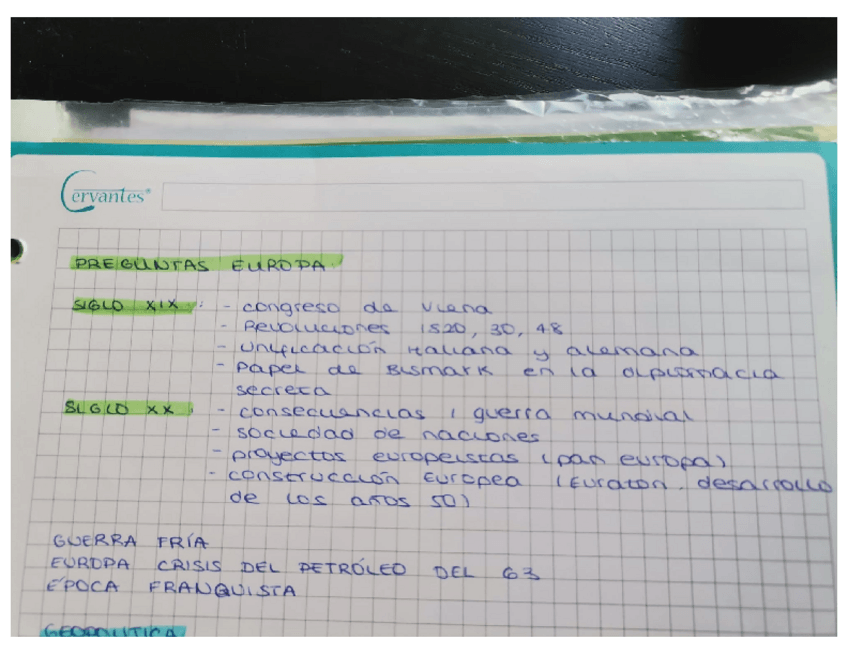 Cervantes®
PREGUNTAS EUROPA
SIGLO XIX: - congreso de Viena
- Revoluciones 1820, 30, 48
- Unificación italiana y alemana
- Papel de Bismark en la diplomacia
secreta
SIGLO XX: - consecuencias I guerra mundial
- sociedad de naciones
- proyectos europeistas (pan europa)
- construcción Europea (Euratón. desarrollo
de los años 50)
GUERRA FRÍA
EUROPA CRISIS DEL PETRÓLEO DEL 63
ÉPOCA FRANQUISTA
GEOPOLITICA